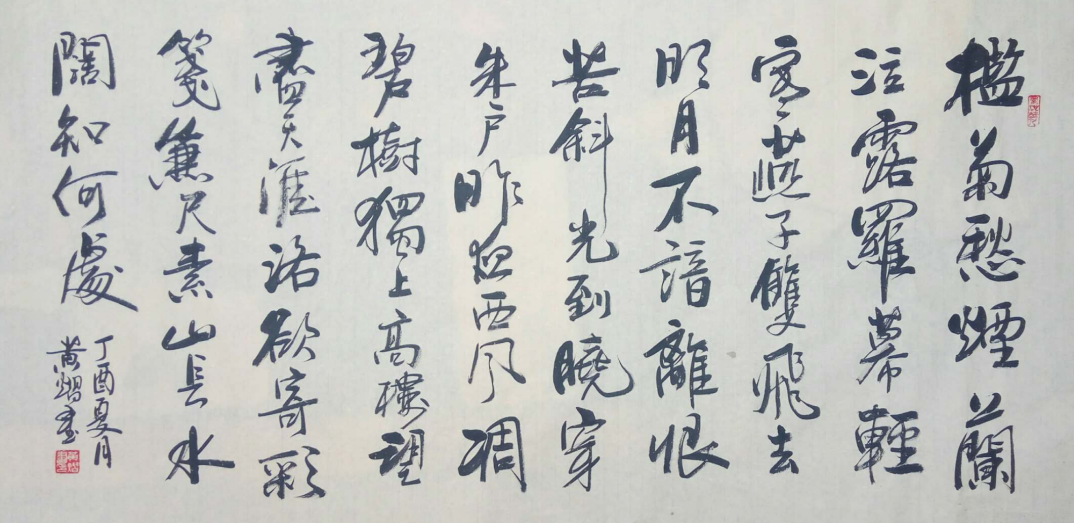 檻菊愁煙蘭
泣露羅幕輕
寒燕子雙飛去
明月不諳離恨
苦斜光到曉穿
朱戶昨夜西風凋
碧樹獨上高樓望
盡天涯路欲寄彩
箋兼尺素山長水
闊知何處
丁酉夏月
黄熠書